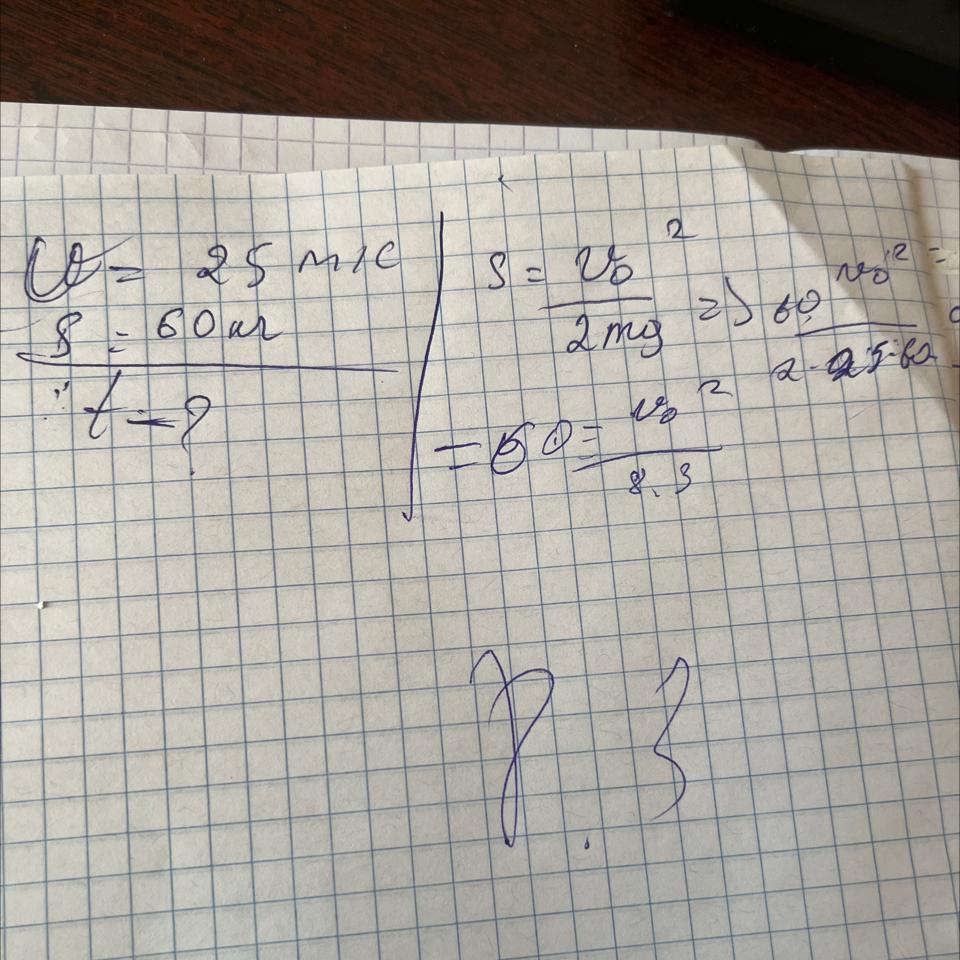 v = 25 м/с
S = 60 км
t = ?
S = v₀² / 2mg => 60 v₀² / 2 · 25 · 60 =
= 60 = v₀² / 8.3
8.3